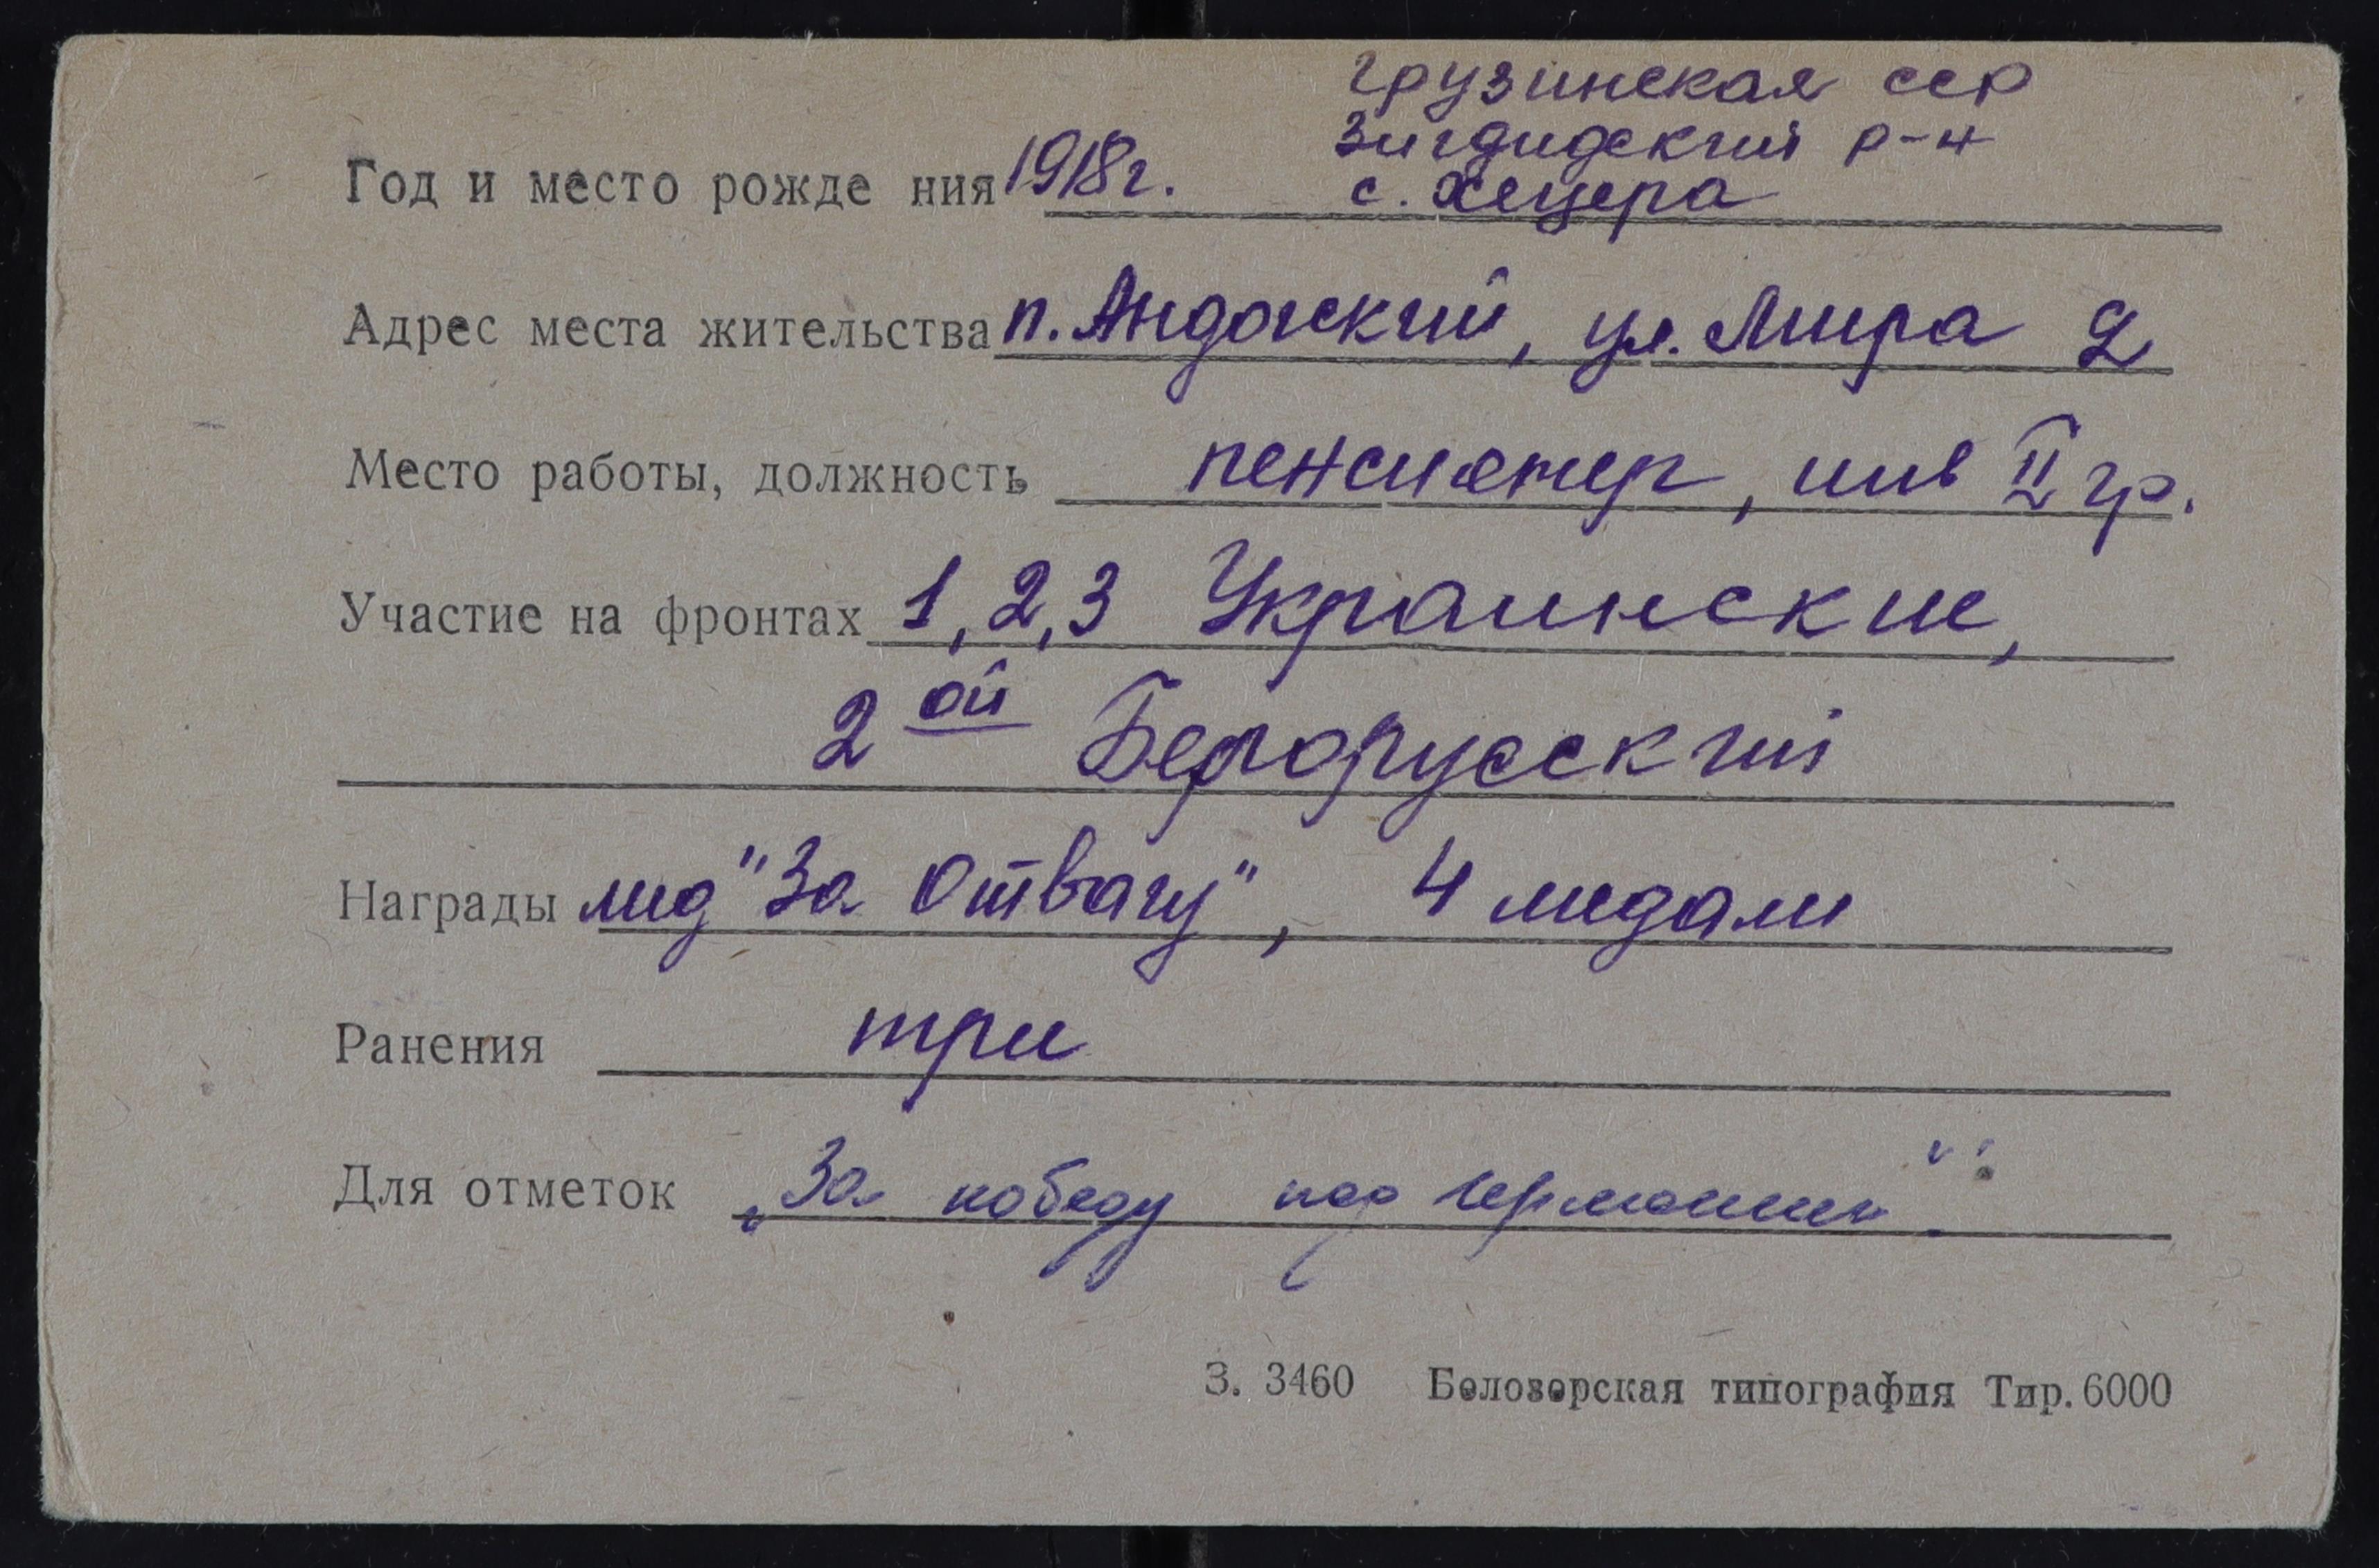 Грузинская сср
Зугдидский р-н
Год и место рожде ния 1918г. с. Хецера
Адрес места жительства п. Андогский, ул. Мира 2
Место работы, должность пенсионер, инв II гр.
Участие на фронтах 1, 2, 3 Украинские,
2ой Белорусский
Награды мед "За Отвагу", 4 медали
Ранения три
Для отметок „За победу над Германией".
З. 3460 Белозерская типография Тир. 6000